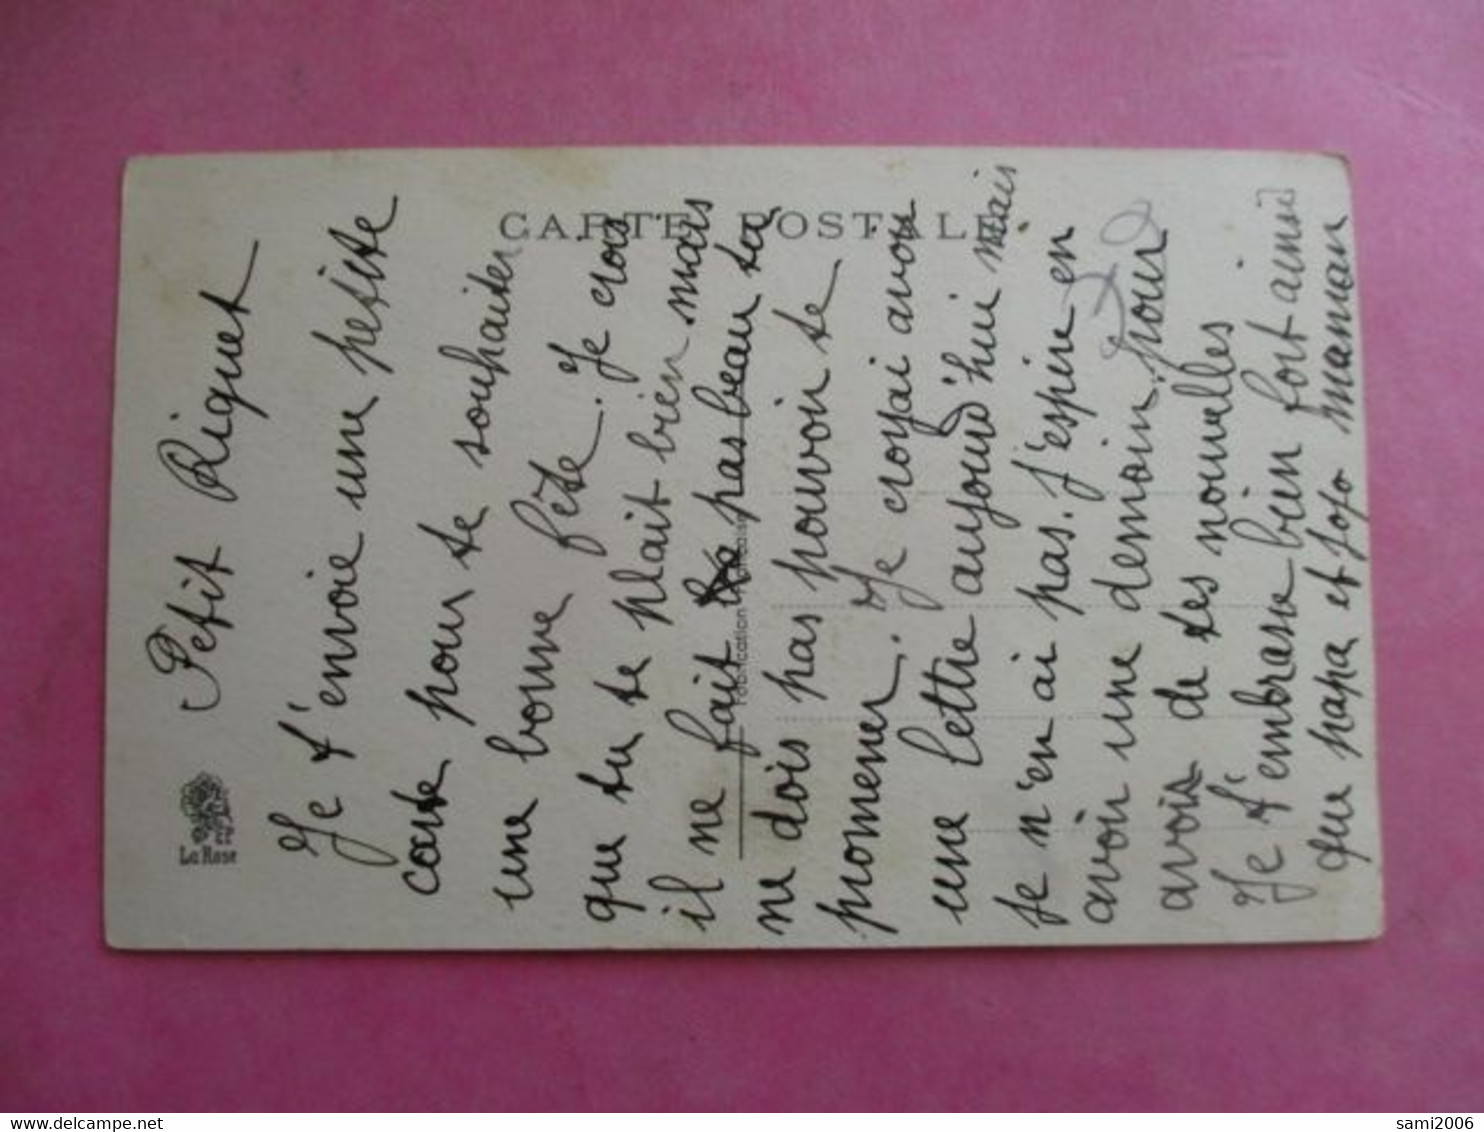 CARTE POSTALE
La Rose
Fabrication Française
Petit Riquet
Je t'envoie une petite
carte pour te souhaiter
une bonne fête. Je crois
que tu te plait bien mais
il ne fait pas beau tu
ne dois pas pouvoir te
promener. Je croyai avoir
une lettre aujourd'hui mais
je n'en ai pas. J'espère en
avoir une demain pour
avoir de tes nouvelles
Je t'embrasse bien fort ainsi
que papa et Jojo maman
delcampe.net
sami2006